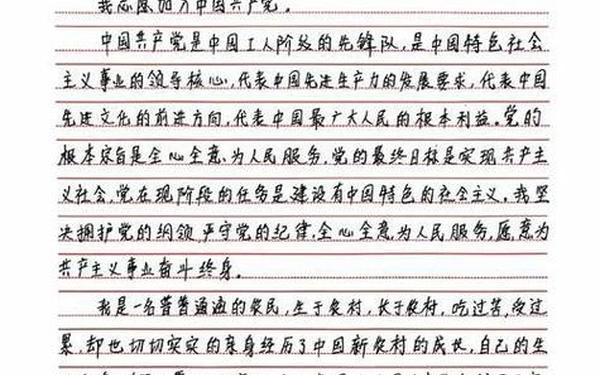 我志愿加入中国共产党。
中国共产党是中国工人阶级的先锋队，是中国特色社会
主义事业的领导核心，代表中国先进生产力的发展要求，代表中国
先进文化的前进方向，代表中国最广大人民的根本利益。党的
根本宗旨是全心全意为人民服务，党的最终目标是实现共产主
义社会，党在现阶段的任务是建设有中国特色的社会主义。我坚
决拥护党的纲领，严守党的纪律，全心全意为人民服务，愿意为
共产主义事业奋斗终身。
我是一名普普通通的农民，生于农村，长于农村，吃过苦，受过
累，却也切切实实的亲身经历了中国新农村的成长，自己的生